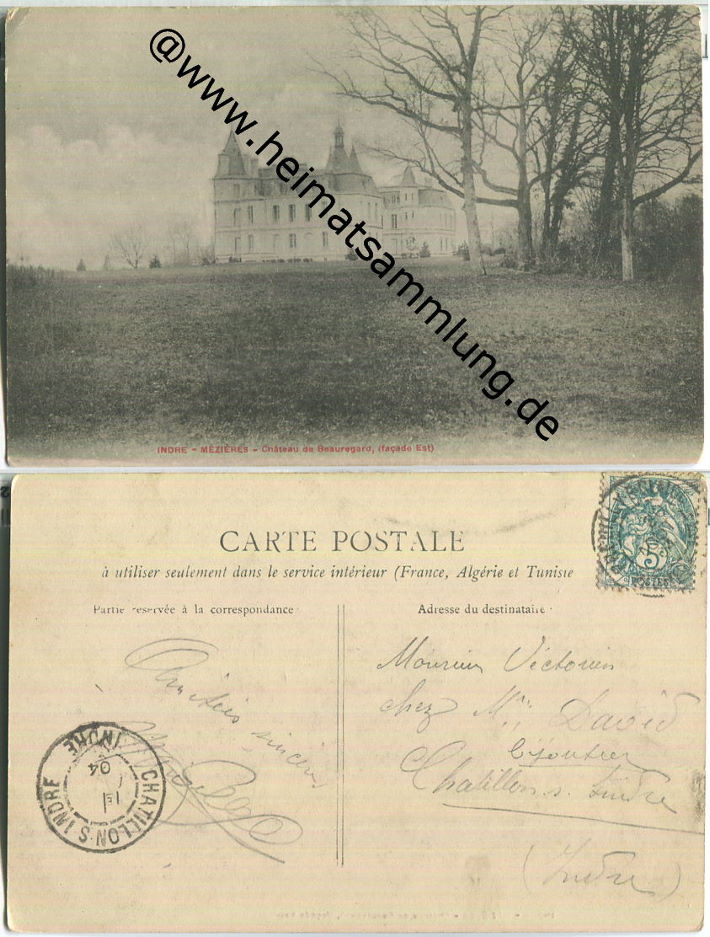 @www.heimatsammlung.de
INDRE - MÉZIÈRES - Château de Beauregard, (façade Est)
CARTE POSTALE
à utiliser seulement dans le service intérieur (France, Algérie et Tunisie
Partie réservée à la correspondance
Adresse du destinataire
POSTES
5
Amitiés
sincères
CHATILLON-S-INDRE
INDRE
04
Monsieur Victorien
chez Mr David
Chatillon s. Indre
(Indre)